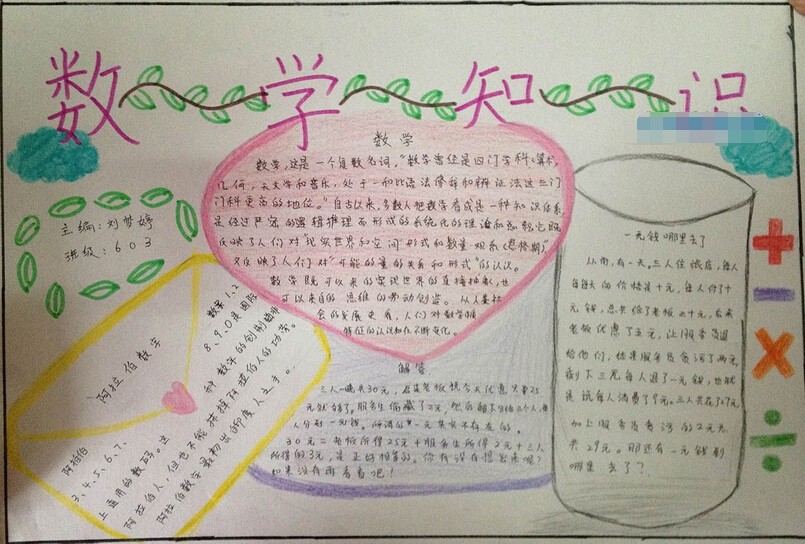 数学知识
主编:刘梦婷
班级:603
数学
数学,这是一个复数名词,“数学曾经是四门学科:算术,
几何,天文学和音乐,处于一种比语法修辞和辨证法这三门
门科更高的地位。”自古以来,多数人把数学看成是一种知识体系,
是经过严密的逻辑推理而形成的系统化的理论和知识
反映了人们对“现实世界和空间”形式和数量关系
又反映了人们对“可能的量的关系和形式”的认识。
数学既可以来自现实世界的直接抽象,也
可以来自的思维的劳动创造。从人类社
会的发展史看,人们对数学
特征的认识和在不断变化。
一元钱哪里去了
从前,有一天,三人住旅店,每人
每天的价格是十元,每人付了十
元钱,总共给了老板三十元,后来
老板优惠了五元,让服务员退
给他们,结果服务员贪污了两元,
剩下三元每人退了一元钱,也就
是说每人消费了9元。三人共花了27元,
加上服务员贪污的2元
共29元。那还有一元钱到
哪里去了?
解答
三人一晚共30元,后来老板说今天优惠只要25
元就够了,服务生偷藏了2元,然后
人分到一元钱。所谓的一元其实不存在的。
30元=老板所得25元+服务生所得2元+三人
所得的3元,是正好相等的。你有没有想出来呢?
如果没有再看看吧!
阿拉伯数字
阿拉伯数字1、2、
3、4、5、6、7、8、9、0是国际
上通用的数码。这种数字的创制
阿拉伯人,但也不能抹掉阿拉伯人的功劳。
阿拉伯数字最初出自印度人之手。